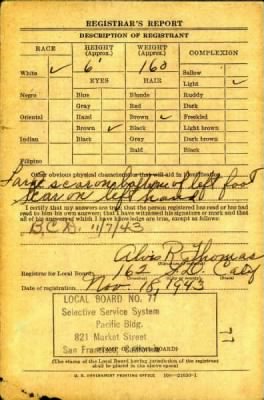 REGISTRAR'S REPORT
DESCRIPTION OF REGISTRANT
RACE HEIGHT (Approx.) WEIGHT (Approx.) COMPLEXION
White ✓ 6' 160 Sallow
EYES HAIR Light ✓
Negro Blue Blonde Ruddy
Gray Red Dark
Oriental Hazel Brown ✓ Freckled
Brown ✓ Black Light brown
Indian Black Gray Dark brown
Bald Black
Filipino
Other obvious physical characteristics that will aid in identification
Large scar on bottom of left foot
scar on left hand
I certify that my answers are true; that the person registered has read or has had
read to him his own answers; that I have witnessed his signature or mark and that
all of his answers of which I have knowledge are true, except as follows:
11/7/43
Alvis R. Thomas
Registrar for Local Board 162 Calif
Date of registration Nov. 18, 1943
LOCAL BOARD NO. 77
Selective Service System
Pacific Bldg.
821 Market Street
San Francisco, California
77
(STAMP OF LOCAL BOARD)
(The stamp of the Local Board having jurisdiction of the registrant
shall be placed in the above space)
U. S. GOVERNMENT PRINTING OFFICE 16—21630-1